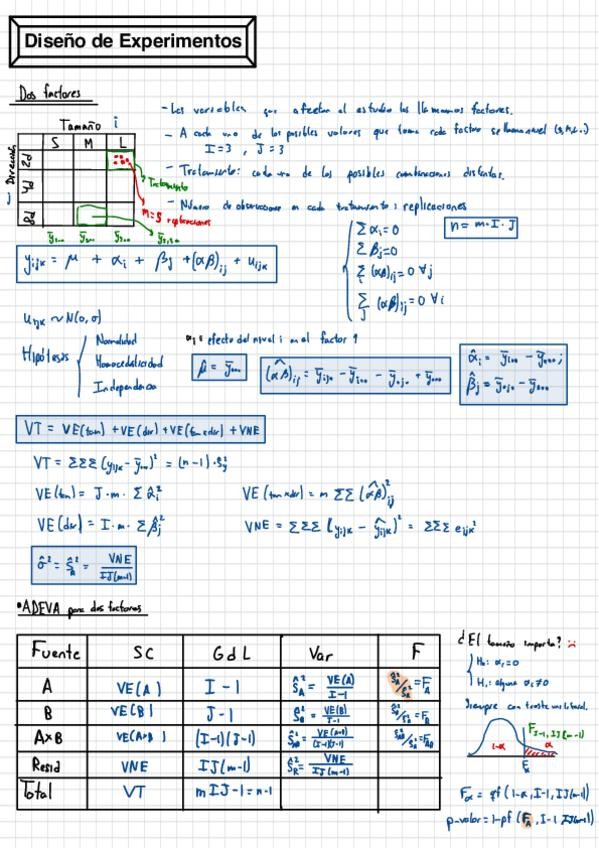 Diseño de Experimentos
Dos factores
Tamaño i
S M L
Dirección j
2d
4d
8d
Tratamiento
m=5 replicaciones
- Las variables que afectan al estudio las llamamos factores.
- A cada uno de los posibles valores que toma cada factor se llama nivel
I=3 , J=3
- Tratamiento: cada una de las posibles combinaciones distintas.
- Número de observaciones en cada tratamiento: replicaciones
n = m·I·J
∑ αi=0
∑ βj=0
∑i (αβ)ij=0 ∀j
∑j (αβ)ij=0 ∀i
yijk = μ + αi + βj + (αβ)ij + uijk
uijk ~ N(0,σ)
Hipótesis
Normalidad
Homocedasticidad
Independencia
αi: efecto del nivel i en el factor 1
μ̂ = ȳ...
(αβ)^ij = ȳij. - ȳi.. - ȳ.j. + ȳ...
α̂i = ȳi.. - ȳ... ;
β̂j = ȳ.j. - ȳ...
VT = VE(tam) + VE(dir) + VE(tam×dir) + VNE
VT = ∑∑∑ (yijk - ȳ...)² = (n-1)·ŝy²
VE(tam) = J·m· ∑ α̂i²
VE(tam×dir) = m ∑∑ (αβ)^²ij
VE(dir) = I·m· ∑ β̂j²
VNE = ∑∑∑ (yijk - ŷijk)² = ∑∑∑ eijk²
σ̂² = ŝR² = VNE / IJ(m-1)
• ADEVA para dos factores
Fuente SC GdL Var F
A VE(A) I-1 ŝA² = VE(A)/I-1 ŝA²/ŝR² = FA
B VE(B) J-1 ŝB² = VE(B)/J-1 ŝB²/ŝR² = FB
A×B VE(A×B) (I-1)(J-1) ŝAB² = VE(A×B)/(I-1)(J-1) ŝAB²/ŝR² = FAB
Resid VNE IJ(m-1) ŝR² = VNE/IJ(m-1)
Total VT mIJ-1 = n-1
¿El tamaño importa?
H0: αi=0
H1: algún αi≠0
Siempre contraste unilateral.
FI-1, IJ(m-1)
1-α α
Fα
Fα = qf (1-α, I-1, IJ(m-1))
p-valor = 1-pf (FA, I-1, IJ(m-1))